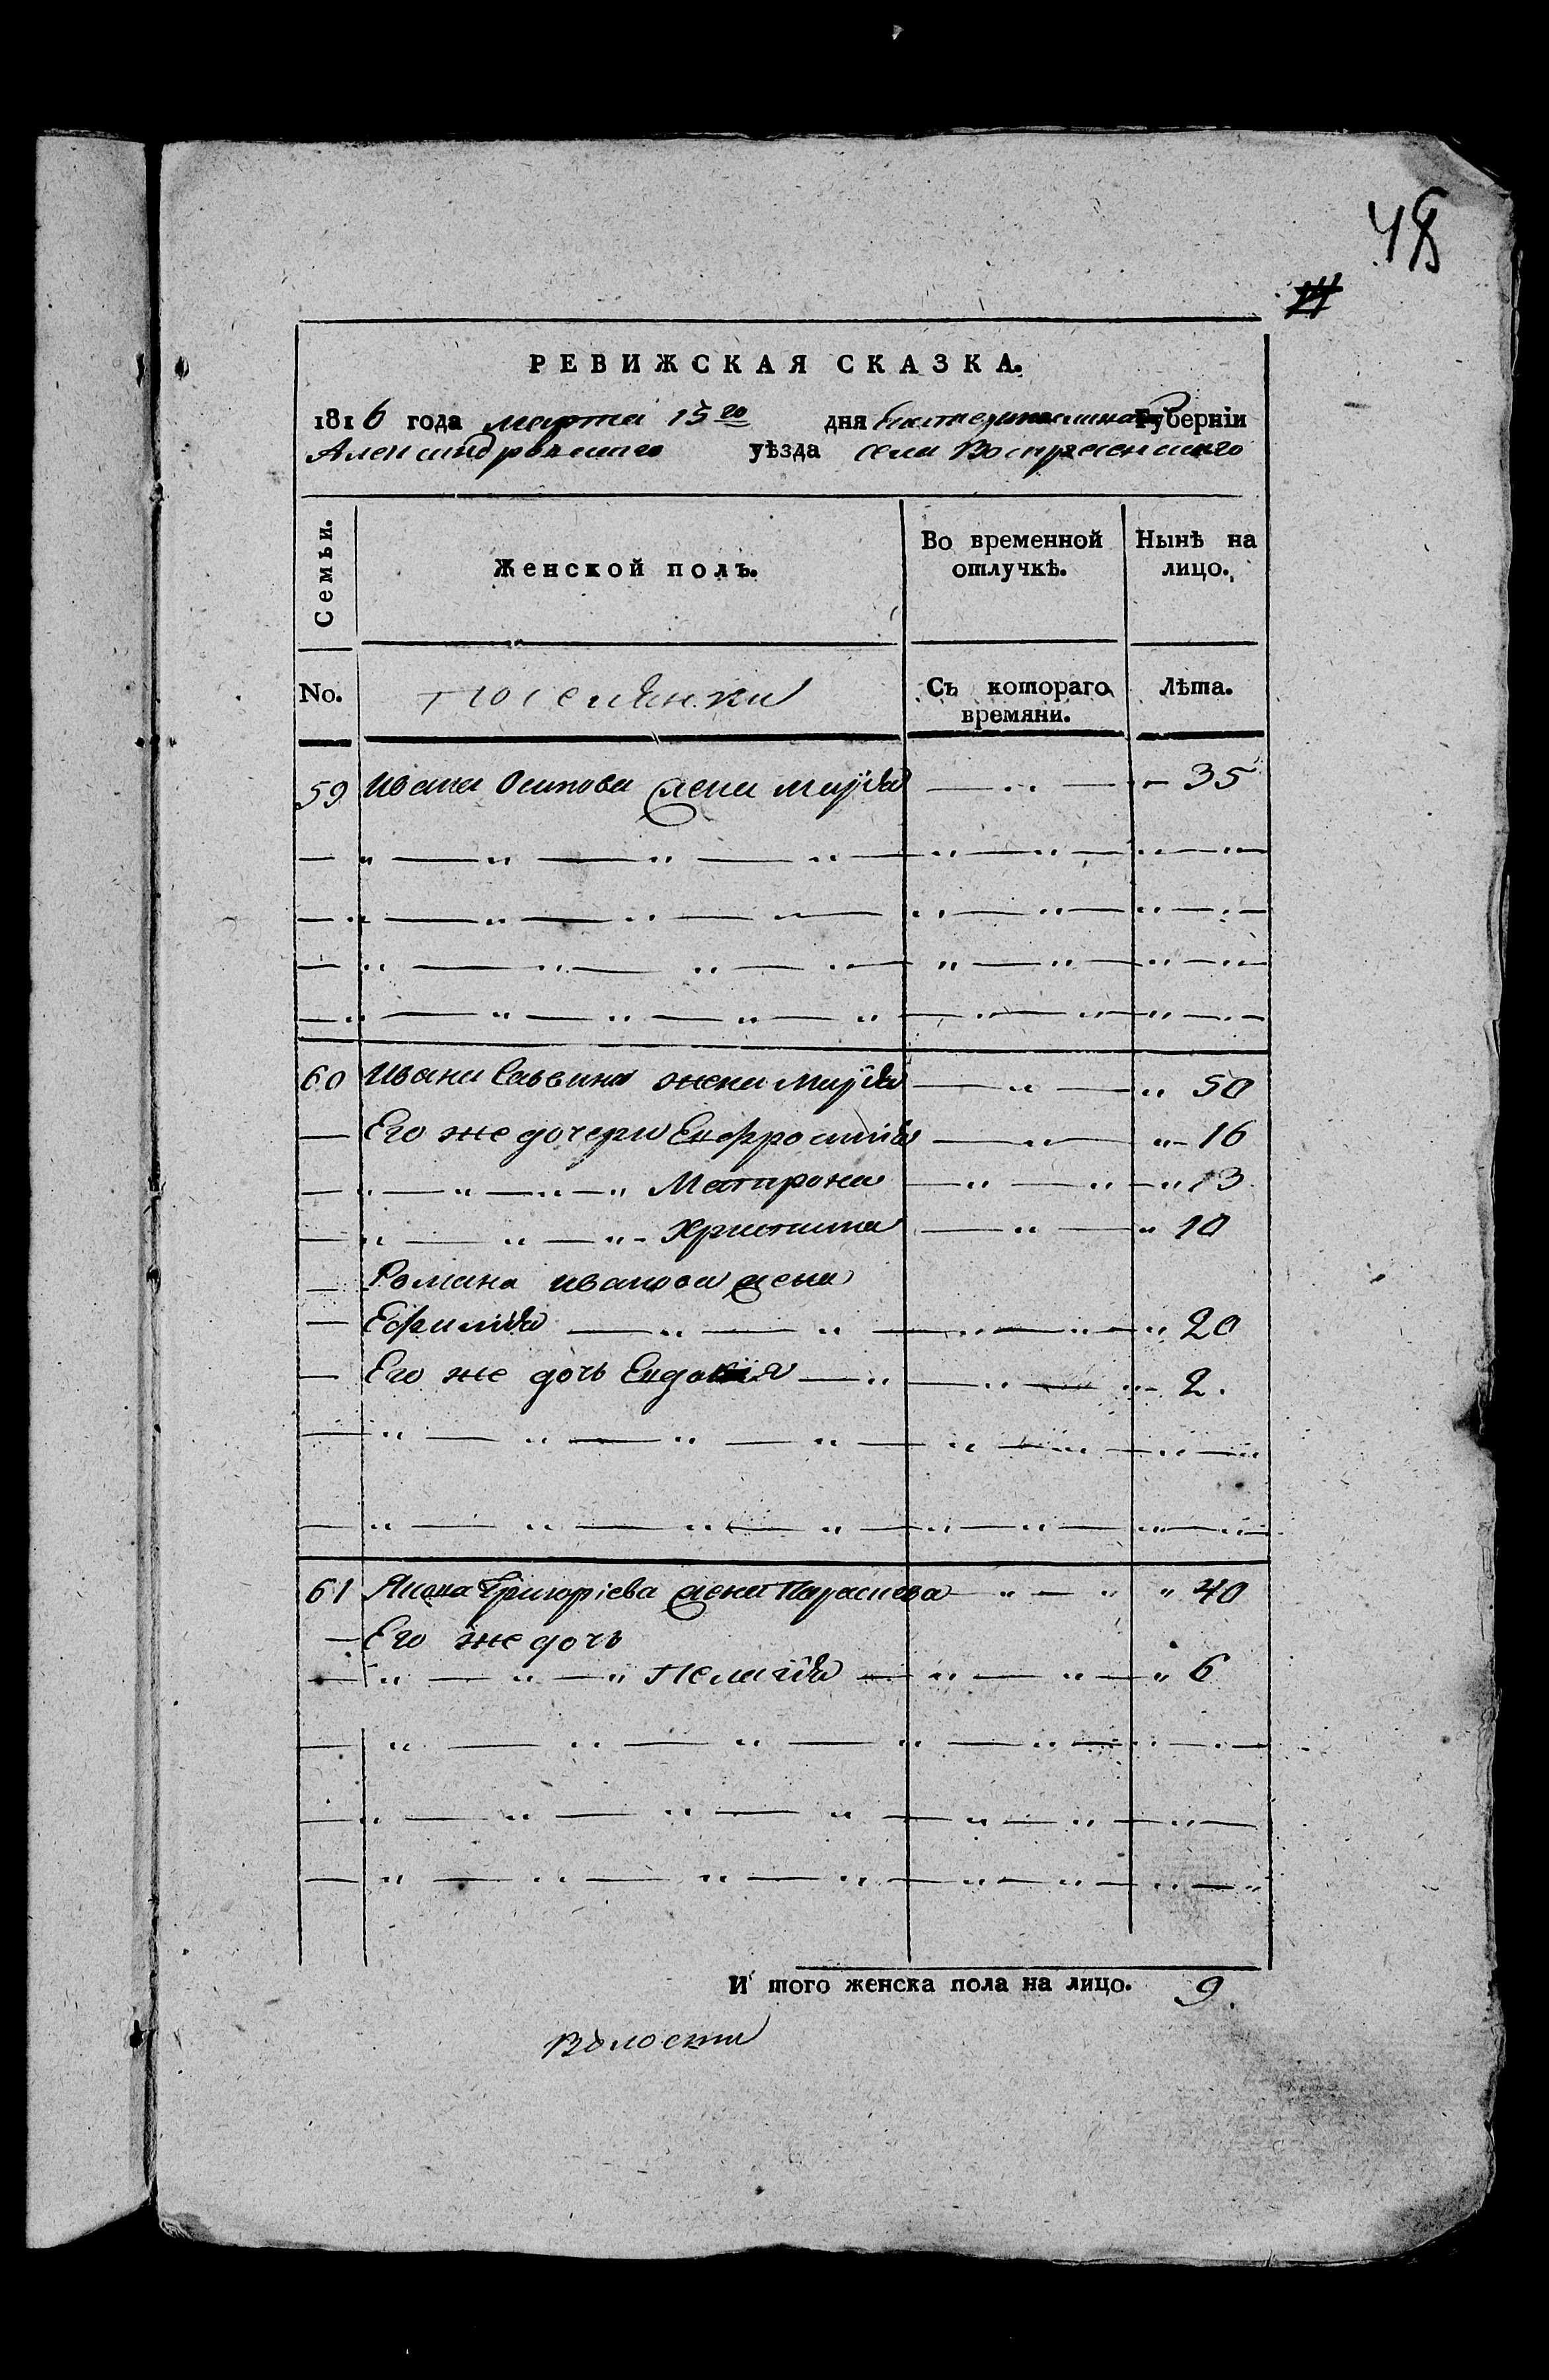 48
РЕВИЖСКАЯ СКАЗКА.
1816 года марта 15го дня Екатеринославской Губерніи
Александровскаго уѣзда села Воскресенскаго
Семьи. Женской полъ. Во временной отлучкѣ. Нынѣ на лицо.
No. Поселянки Съ котораго времяни. Лѣта.
59 Ивана Осипова жена Марія 35
60 Ивана Саввина жена Марія 50
Его же дочери Ефросинія 16
Матрона 13
Христина 10
Романа Иванова жена
Ефимія 20
Его же дочь Евдокія 2.
61 Якова Григоріева жена Параскева 40
Его же дочь
Пелагія 6
И того женска пола на лицо. 9.
Волости